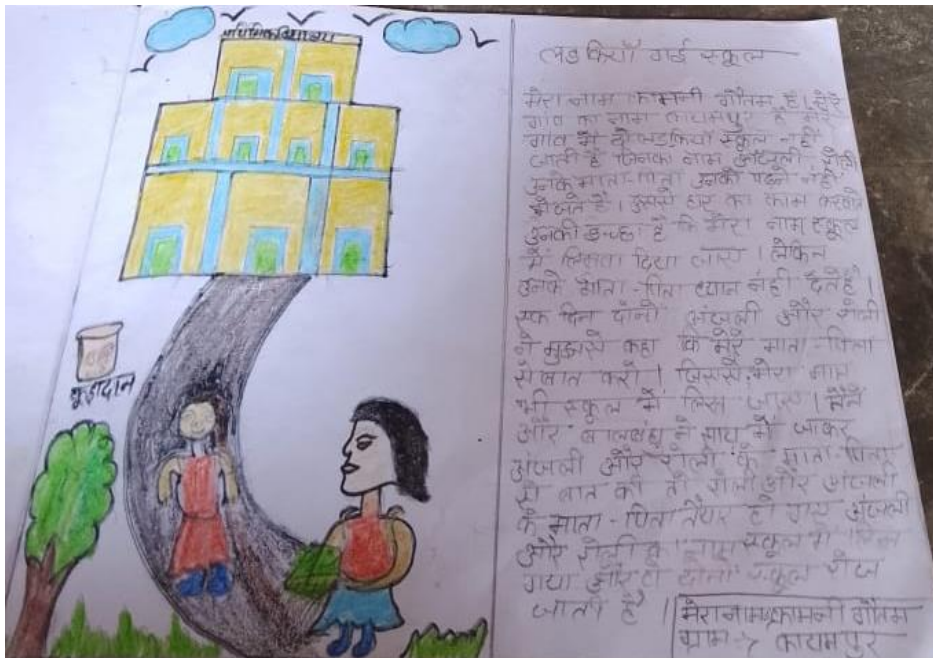 प्राथमिक विद्यालय
कूड़ादान
लडकियाँ गई स्कूल
मेरा नाम कामनी गौतम है। मेरे
गांव का नाम कायमपुर है मेरे
गांव में दो लडकियाँ स्कूल नहीं
जाती है जिनका नाम अंजली, रोली
उनके माता-पिता उनको पढने नहीं
भेजते है। घर का काम करवाते
उनकी इच्छा है कि मेरा नाम स्कूल
में लिखा दिया जाए। लेकिन
उनके माता-पिता ध्यान नहीं देते है।
एक दिन दोनो अंजली और रोली
ने मुझसे कहा कि मेरे माता-पिता
से बात करो। जिससे मेरा नाम
भी स्कूल में लिख जाए। मैंने
और बालबंधु ने साथ में जाकर
अंजली और रोली के माता-पिता
से बात की तो रोली और अंजली
के माता-पिता तैयार हो गए अंजली
और रोली का नाम स्कूल में लिख
गया और दोनों स्कूल रोज
जाती है।
मेरा नाम कामनी गौतम
ग्राम-> कायमपुर